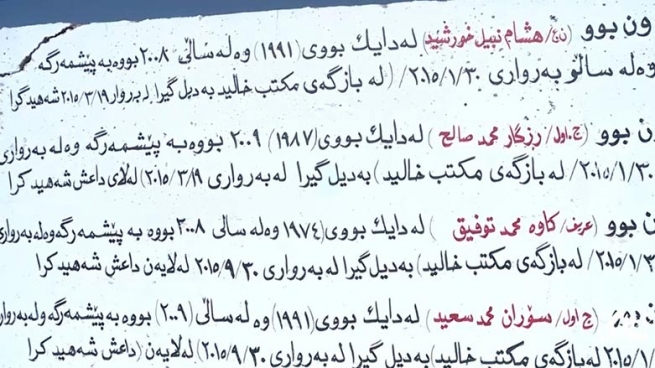 ون بوو (ن.ع/ هشام نبيل خورشيد) لەدایك بووی (١٩٩١) وەلەساڵی ٢٠٠٨ بووەبەپێشمەرگە
وەلە ساڵو بەرواری ٢٠١٥/١/٣٠/ (لە بازگەی مكتب خالید بەدیل گیرا لەبروار ٢٠١٥/٣/١٩ شەهید کرا
ن بوو (ج.اول/ رزگار محمد صالح) لەدایك بووی (١٩٨٧) ٢٠٠٩ بووەبە پێشمەرگە وەلە بەرواری
٢٠١٥/١/٣٠/ لە بازگەی مكتب خالید) بەدیل گیرا لەبەرواری ٢٠١٥/٣/١٩) لەلای داعش شەهیدکرا
ن بوو (عریف/ كاوە محمد توفیق) لەدایك بووی (١٩٧٤) وەلە سالی ٢٠٠٨ بووە بە پێشمەرگەوەلەبەرواری
٢٠١٥/١/٣٠/ لەبازگەی مكتب خالید) بەدیل گیرا لە بەرواری ٢٠١٥/٩/٣٠ لەلایەن داعش شەهیدکرا
(ج اول/ سۆران محمد سعید) لەدایك بووی (١٩٩١) وە لەساڵی (٢٠٠٩) بووە بەپێشمەرگە ولەبەروار
٢٠١٥/١/٣٠ لەبازگەی مكتب خالید) بەدیل گیرا لەبەرواری ٢٠١٥/٩/٣٠) لەلایەن (داعش شەهید کرا